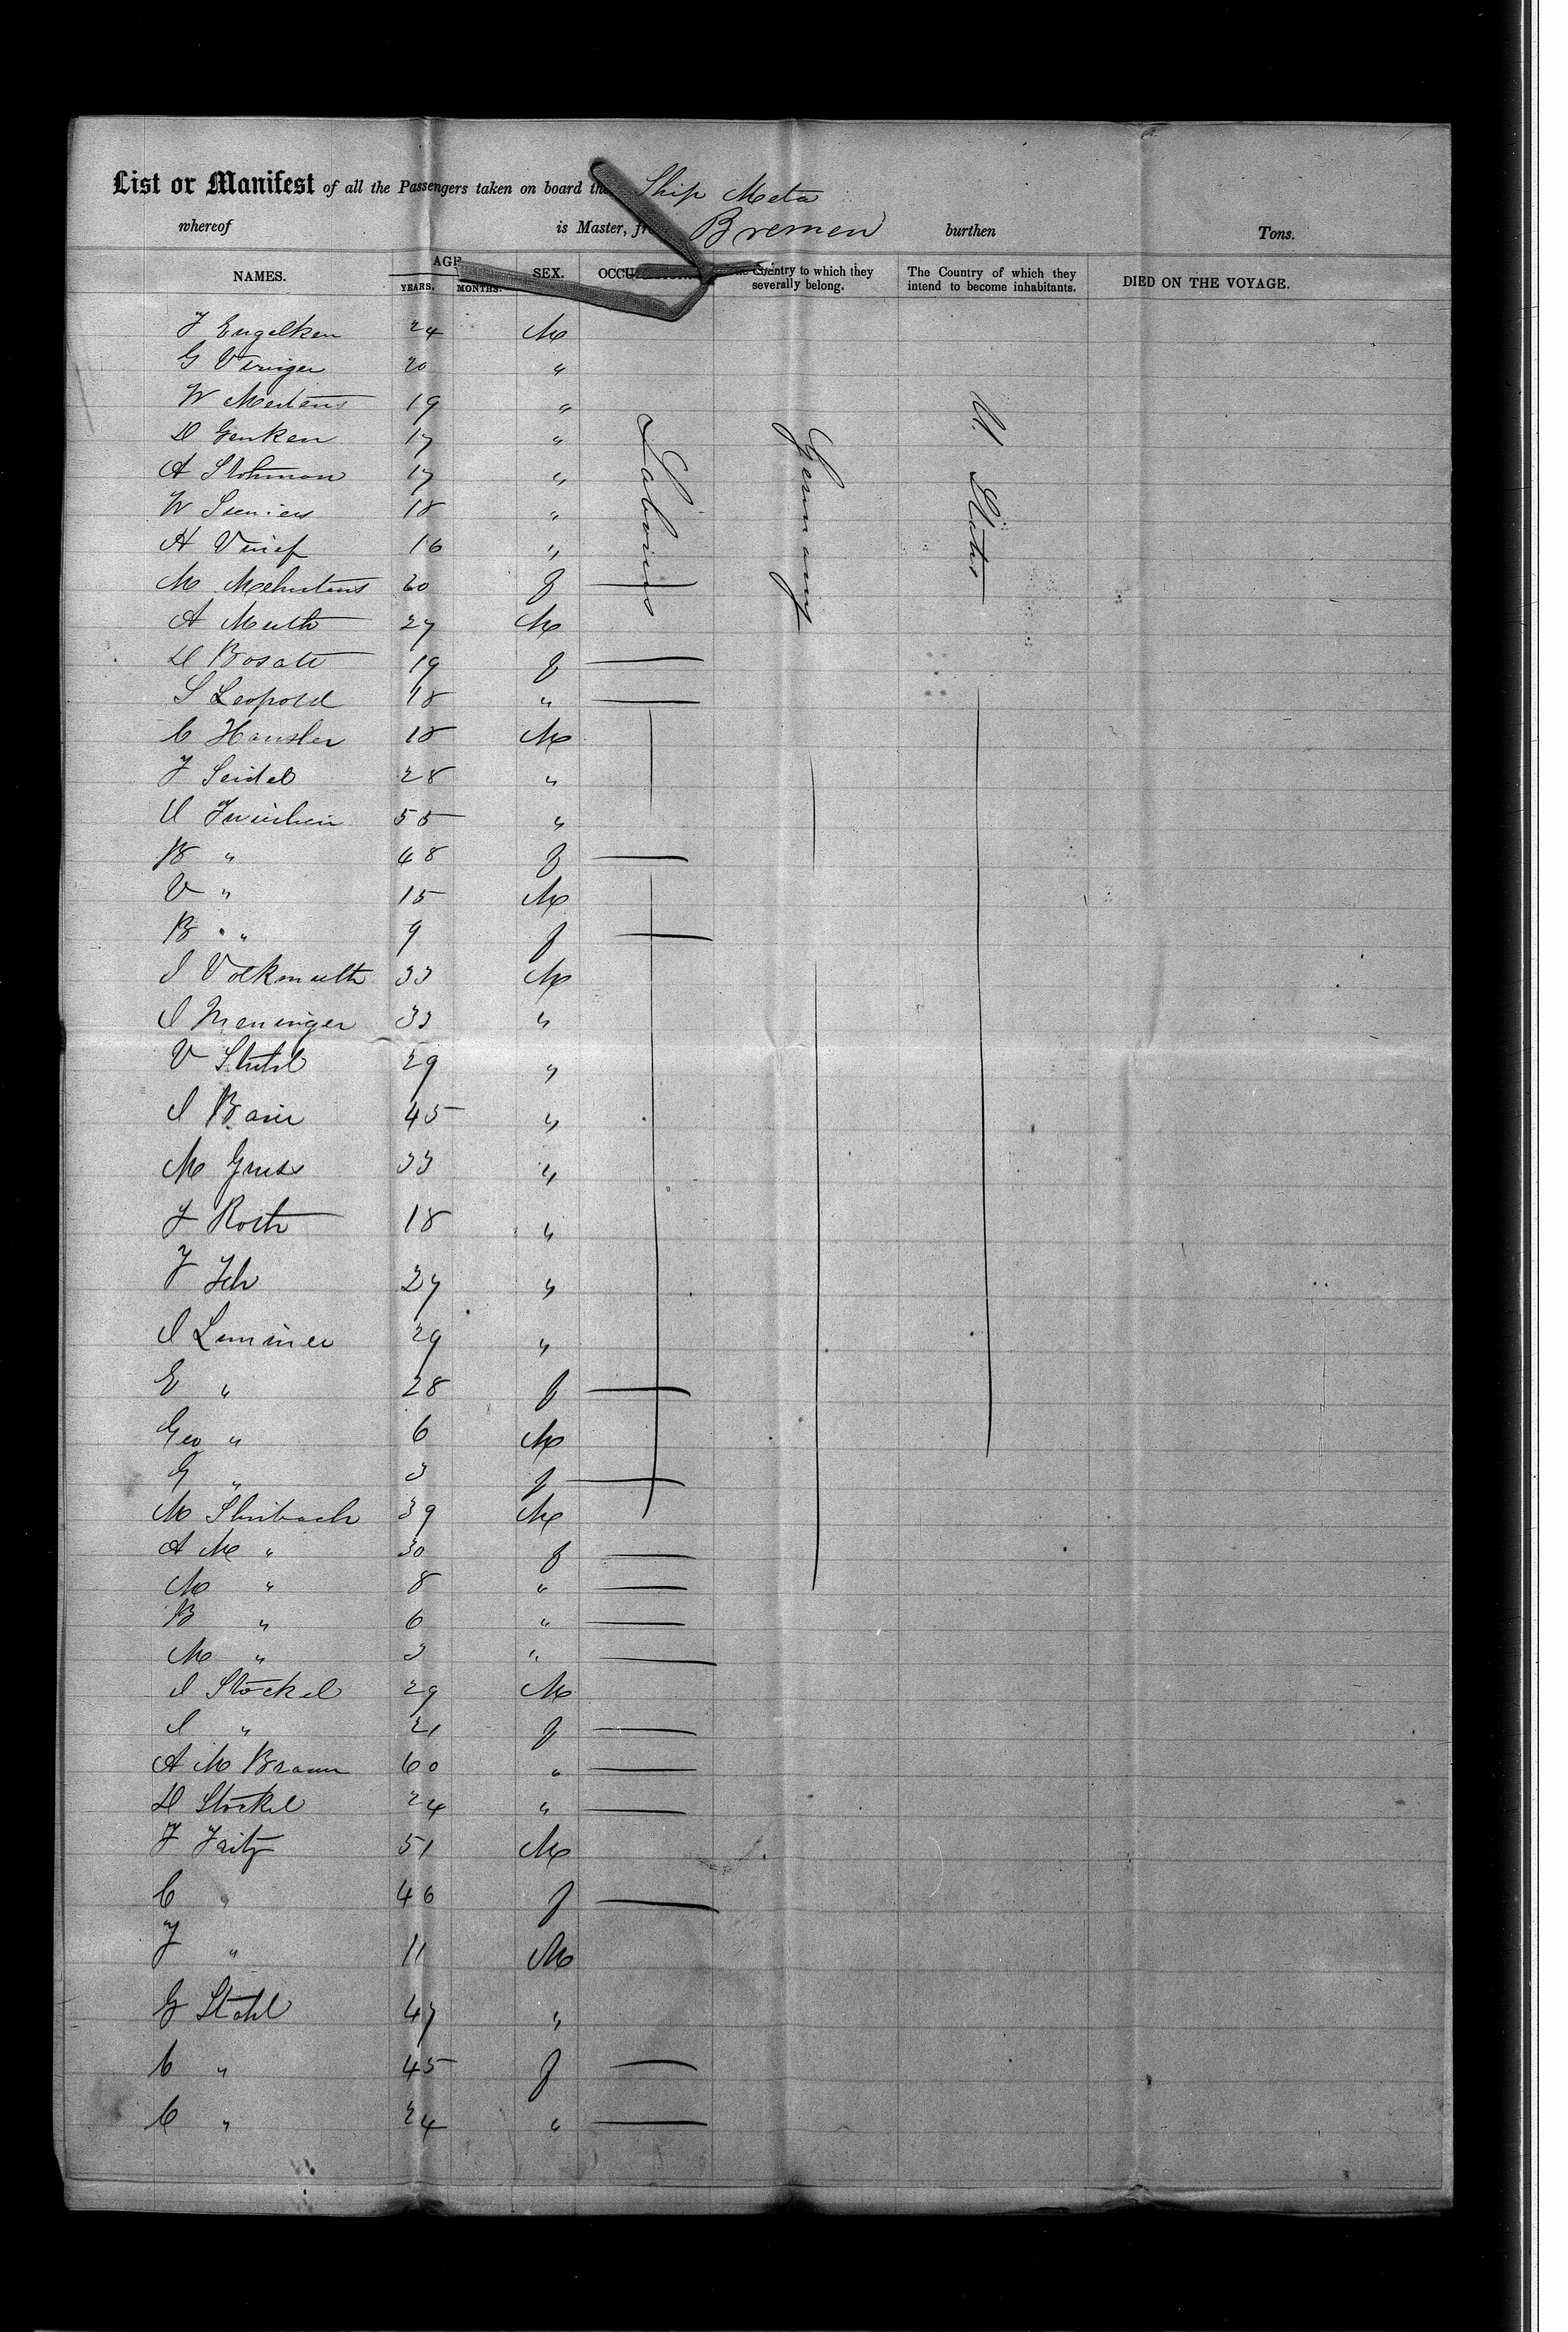 List or Manifest of all the Passengers taken on board the Ship Meta
whereof is Master, from Bremen burthen Tons.
NAMES. AGE YEARS. MONTHS. SEX. OCCUPATION. The Country to which they severally belong. The Country of which they intend to become inhabitants. DIED ON THE VOYAGE.
Labories Germany U. States
J Engelken 24 M
G Viniger 20 "
W Mertens 19 "
D Genken 17 "
A Slohman 17 "
W 18 "
A 16 "
M Mehrtens 20 f
A Muth 27 M
D Bosatt 19 f
S Leopold 18 "
C Hansler 18 M
J Seidel 28 "
U 55 "
B " 48 f
V " 15 M
B " 9 f
I Volkmuth 33 M
I Meninger 33 "
V Stuhl 29 "
I Baur 45 "
M Gruss 33 "
J Roth 18 "
J 27 "
I Lemmer 29 "
E " 28 f
Geo " 6 M
G " 3 f
M Steibach 39 M
A M " 30 f
M " 8 "
B " 6 "
M " 3 "
I Stöckel 29 M
I " 21 f
A M Braun 60 "
D Stöckel 24 "
J Fritz 51 M
C " 46 f
J " 11 M
G Stahl 47 "
C " 45 f
C " 24 "